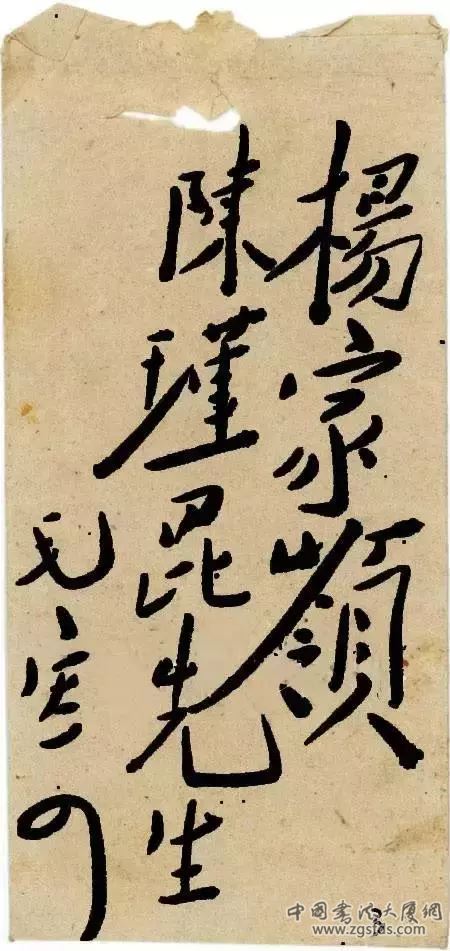 楊家嶺
陳瑾昆先生
毛寄
中国書法大厦網
www.zgsfds.com